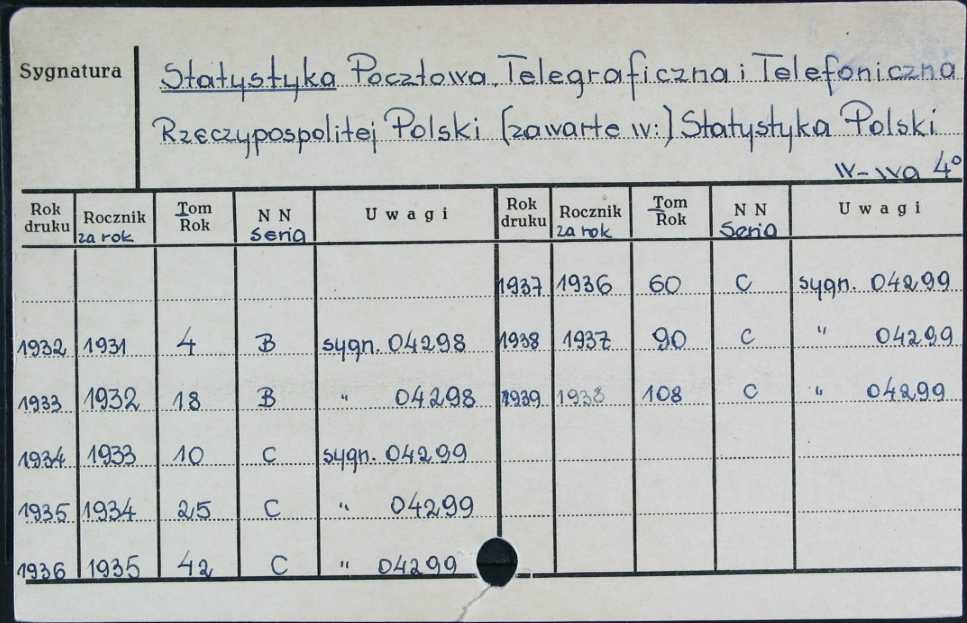 Sygnatura
Statystyka Pocztowa, Telegraficzna i Telefoniczna
Rzeczypospolitej Polski [zawarte w:] Statystyka Polski
W-wa 4°
Rok druku Rocznik za rok Tom Rok NN Seria Uwagi Rok druku Rocznik za rok Tom Rok NN Seria Uwagi
1937 1936 60 C sygn. 04299
1932 1931 4 B sygn. 04298 1938 1937 90 C " 04299
1933 1932 18 B " 04298 1939 1938 108 C " 04299
1934 1933 10 C sygn. 04299
1935 1934 25 C " 04299
1936 1935 42 C " 04299